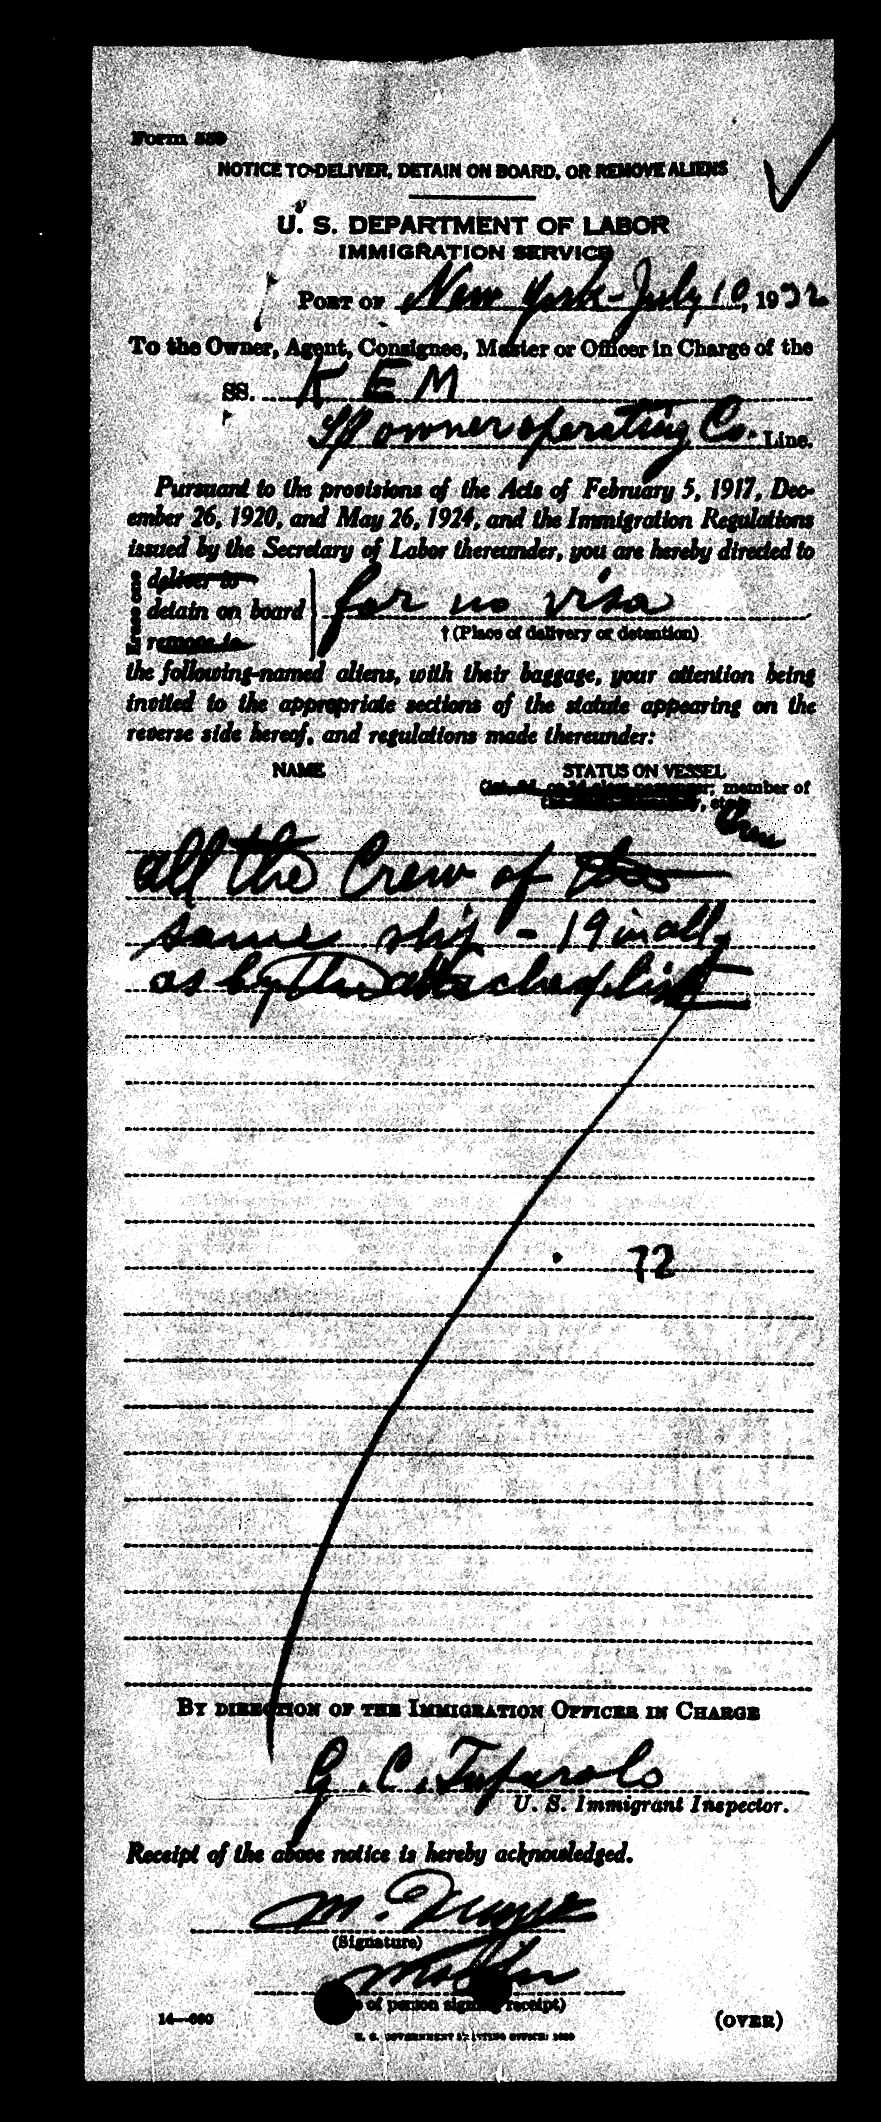 Form 559
NOTICE TO DELIVER, DETAIN ON BOARD, OR REMOVE ALIENS
U. S. DEPARTMENT OF LABOR
IMMIGRATION SERVICE
PORT OF New York - July 10, 1932
To the Owner, Agent, Consignee, Master or Officer in Charge of the
SS. KEM
owner operating Co. Line.
Pursuant to the provisions of the Acts of February 5, 1917, Dec-
ember 26, 1920, and May 26, 1924, and the Immigration Regulations
issued by the Secretary of Labor thereunder, you are hereby directed to
Erase one
deliver to
detain on board
remove to
for no visa
† (Place of delivery or detention)
the following-named aliens, with their baggage, your attention being
invited to the appropriate sections of the statute appearing on the
reverse side hereof, and regulations made thereunder:
NAME STATUS ON VESSEL
member of
, etc.
Crew
all the Crew of the
same ship - 19 in all,
as by the attached list
72
BY DIRECTION OF THE IMMIGRATION OFFICER IN CHARGE
G. C.
U. S. Immigrant Inspector.
Receipt of the above notice is hereby acknowledged.
M.
(Signature)
of person signing receipt)
14—660 (OVER)
U. S. GOVERNMENT PRINTING OFFICE: